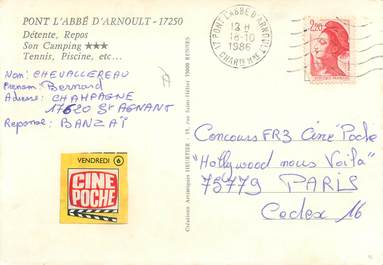 PONT L'ABBÉ D'ARNOULT - 17250
Détente, Repos
Son Camping ★★★
Tennis, Piscine, etc...
Nom: CHEVALLEREAU
Prenom: Bernard
Adresse: CHAMPAGNE
17620 St AGNANT
Reponse: BANZAÏ
VENDREDI 6
CINE
POCHE
Créations Artistiques HEURTIER - 19, rue Saint-Hélier 35000 RENNES
PONT L'ABBE D'ARNOULT
13 H
18-10
1986
CHAR
2,20
Concours FR3 Ciné Poche
"Hollywood nous Voila"
75779 PARIS
Cedex 16